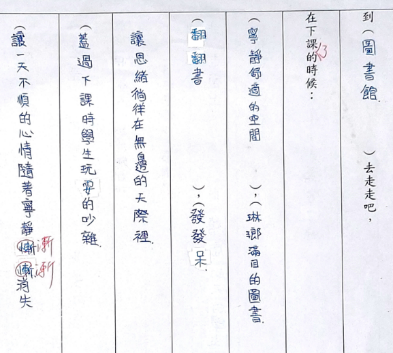 到(圖書館)去走走吧，
在下課的時候：
(寧靜舒適的空間)，(琳瑯滿目的圖書)
(翻翻書)，(發發呆)
讓思緒徜徉在無邊的天際裡
(蓋過下課時學生玩耍的吵雜)
(讓一天不順的心情隨著寧靜漸漸消失